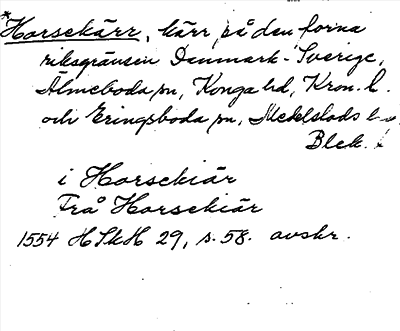 *Horsekärr, kärr på den forna
riksgränsen Danmark-Sverige,
Älmeboda sn, Konga hd, Kron. l.
och Eringsboda sn, Medelstads
Blek.
i Horsekiär
Frå Horsekiär
1554 HSkH 29, s. 58. avskr.